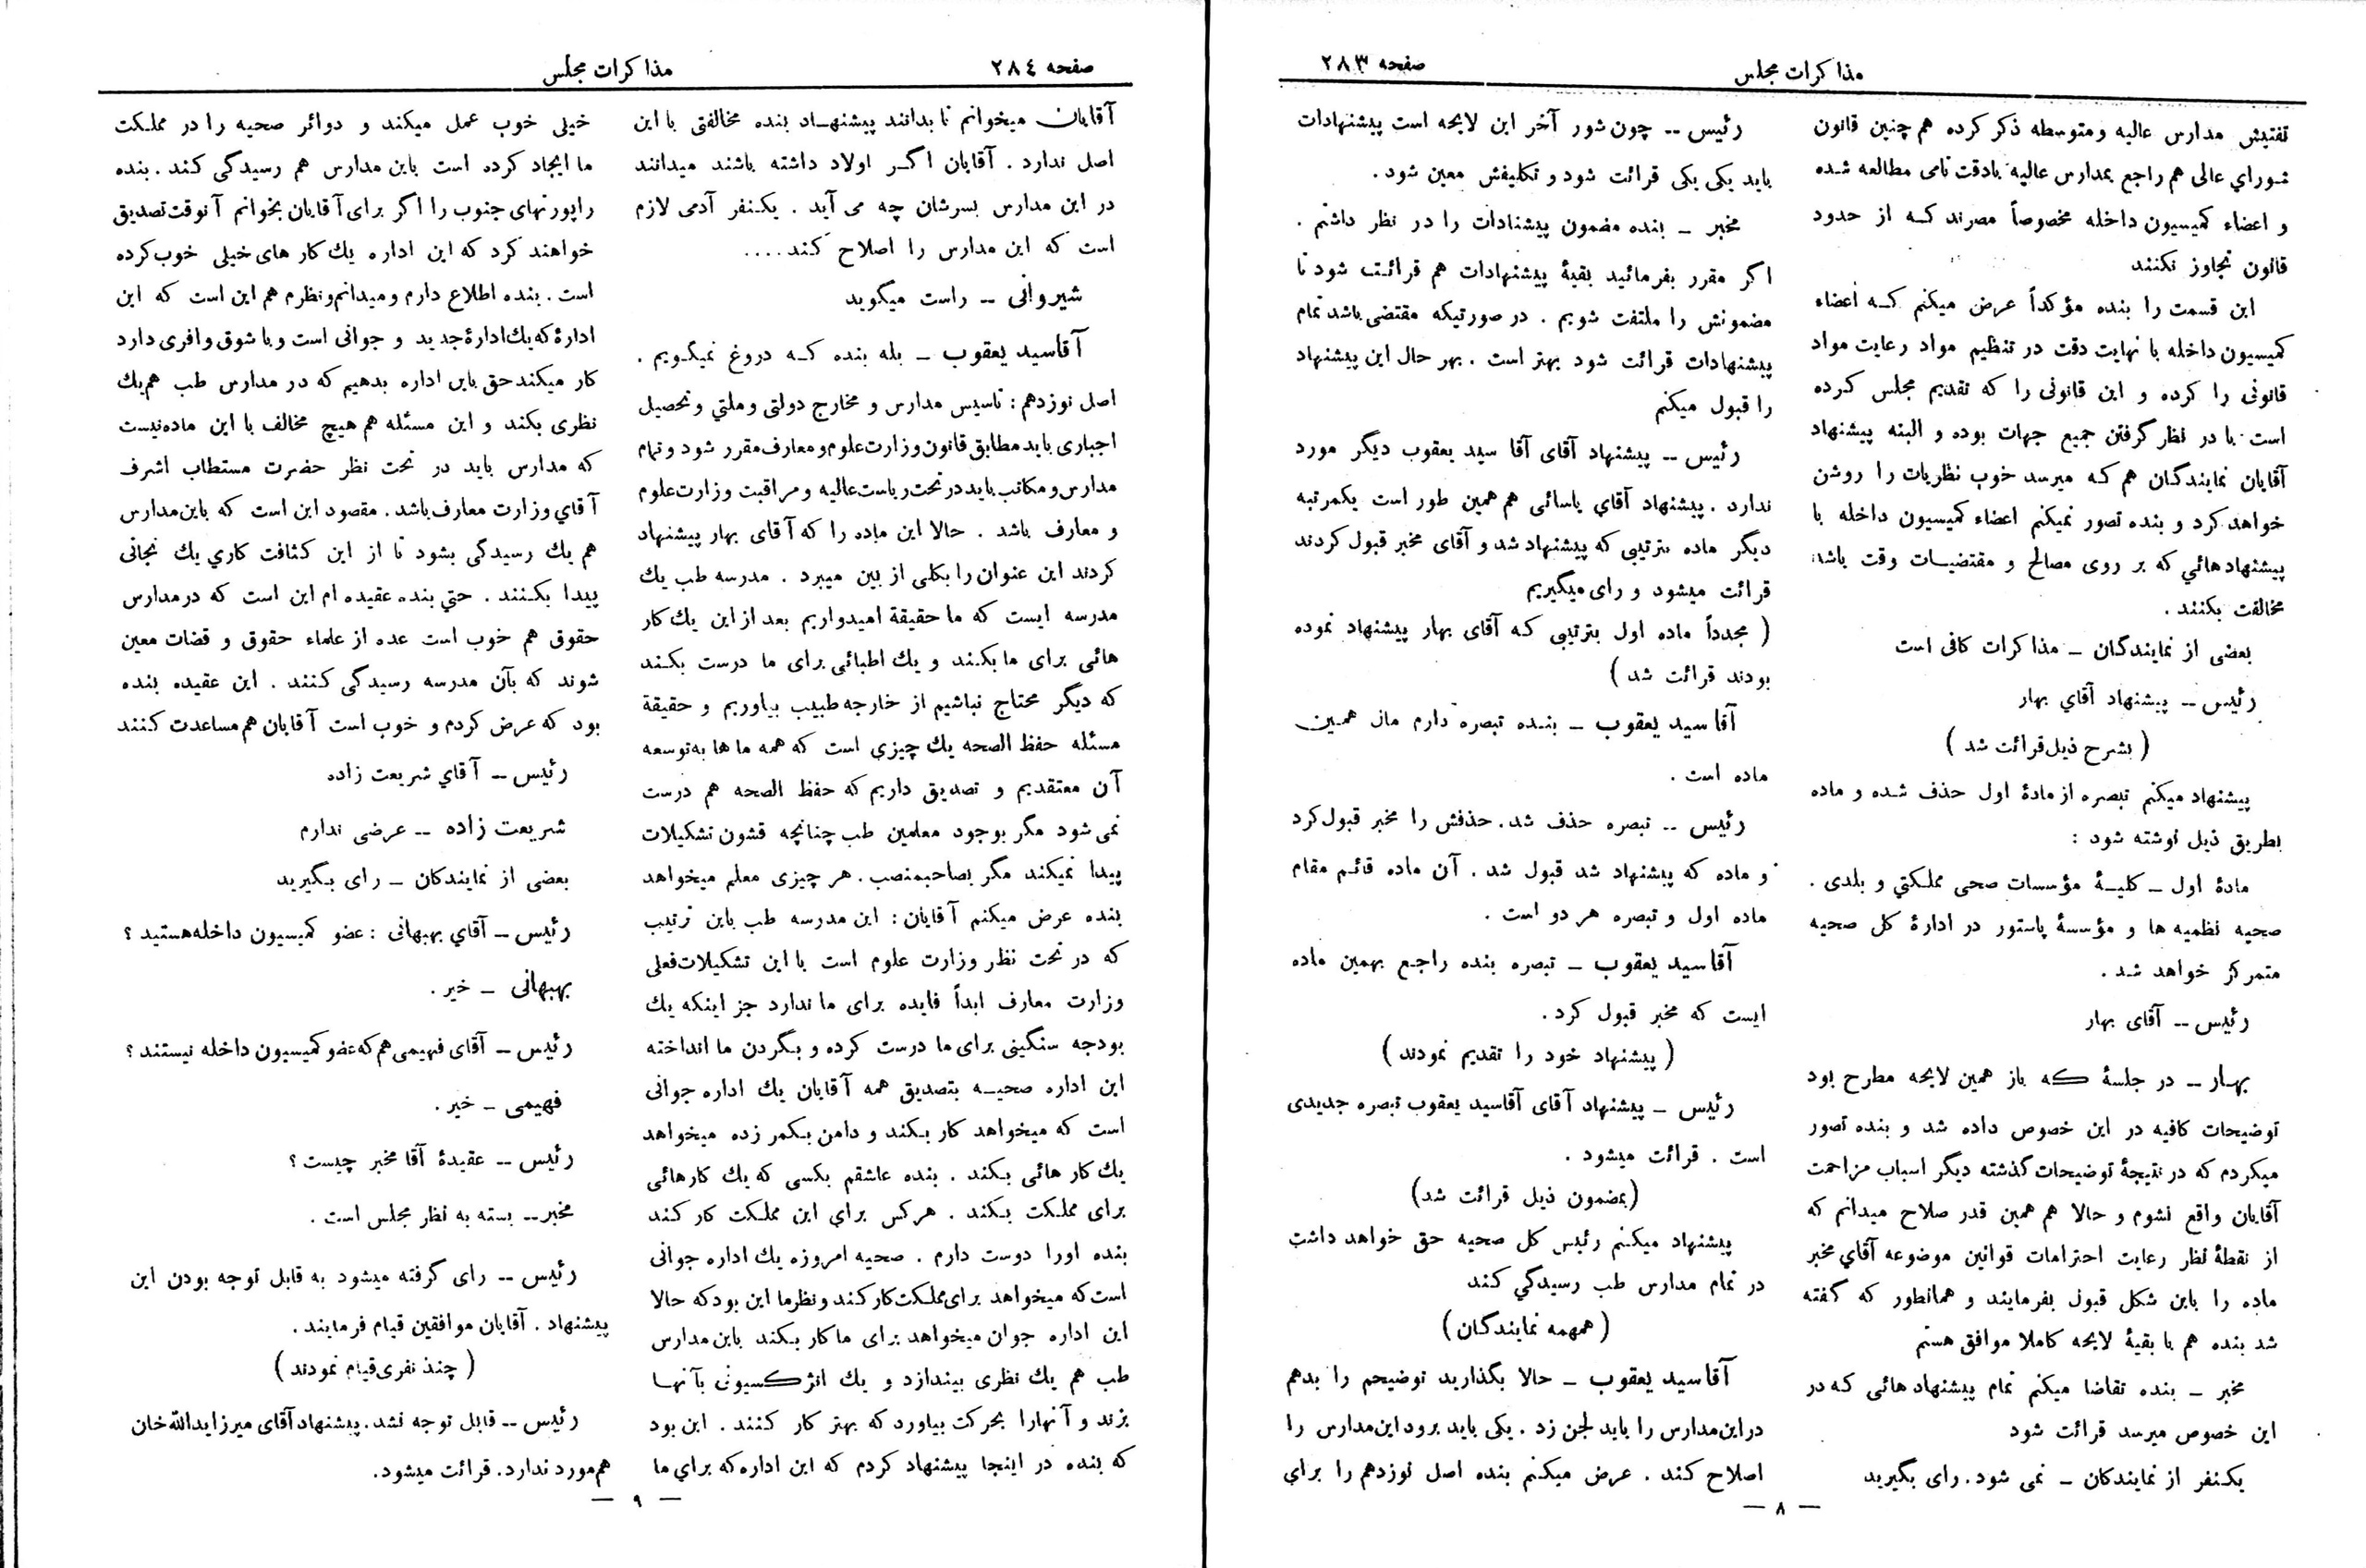 صفحه ۲۸۳
مذاکرات مجلس
تفتیش مدارس عالیه ومتوسطه ذکر کرده هم چنین قانون
شوراي عالی هم راجع بمدارس عالیه بادقت تامی مطالعه شده
و اعضاء کمیسیون داخله مخصوصاً مصرند کـه از حدود
قانون تجاوز نکنند
این قسمت را بنده مؤکداً عرض میکنم کـه اعضاء
کمیسیون داخله با نهایت دقت در تنظیم مواد رعایت مواد
قانونی را کرده و این قانونی را که تقدیم مجلس کرده
است با در نظر گرفتن جمیع جهات بوده و البته پیشنهاد
آقایان نمایندگان هم کـه میرسد خوب نظریات را روشن
خواهد کرد و بنده تصور نمیکنم اعضاء کمیسیون داخله با
پیشنهاد هائي که بر روی مصالح و مقتضیـات وقت باشد
مخالفت بکنند .
بعضی از نمایندگان ـ مذاکرات کافی است
رئیس -- پیشنهاد آقاي بهار
( بشرح ذیل قرائت شد )
پیشنهاد میکنم تبصره از مادۀ اول حذف شده و ماده
بطریق ذیل نوشته شود :
مادۀ اول ـ کلیـۀ مؤسسات صحی مملکتي و بلدی .
صحیه نظمیه ها و مؤسسۀ پاستور در ادارۀ کل صحیه
متمرکز خواهد شد .
رئیس -- آقای بهار
بهـار -- در جلسۀ کـه باز همین لایحه مطرح بود
توضیحات کافیه در این خصوص داده شد و بنده تصور
میکردم که در نتیجۀ توضیحات گذشته دیگر اسباب مزاحمت
آقایان واقع نشوم و حالا هم همین قدر صلاح میدانم که
از نقطۀ نظر رعایت احترامات قوانین موضوعه آقاي مخبر
ماده را باین شکل قبول بفرمایند و همانطور که گفته
شد بنده هم با بقیۀ لایحه کاملا موافق هستم
مخبر ـ بنده تقاضا میکنم تمام پیشنهاد هائی که در
این خصوص میرسد قرائت شود
یکنفر از نمایندکان ـ نمی شود. رای بگیرید
رئیس -- چون شور آخر این لایحه است پیشنهادات
باید یکی یکی قرائت شود و تکلیفش معین شود .
مخبر ـ بنده مضمون پیشنادات را در نظر داشتم .
اکر مقرر بفرمائید بقیۀ پیشنهادات هم قرائت شود تا
مضمونش را ملتفت شویم . در صورتیکه مقتضی باشد تمام
پیشنهادات قرائت شود بهتر است . بهر حال این پیشنهاد
را قبول میکنم
رئیس -- پیشنهاد آقای آقا سید یعقوب دیگر مورد
ندارد . پیشنهاد آقاي یاسائی هم همین طور است یکمرتبه
دیگر ماده بترتیبی که پیشنهاد شد و آقای مخبر قبول کردند
قرائت میشود و رای میگیریم
( مجدداً ماده اول بترتیبی کـه آقای بهار پیشنهاد نموده
بودند قرائت شد )
آقا سید یعقوب ـ بنده تبصره دارم مال همـین
ماده است .
رئیس -- تبصره حذف شد. حذفش را مخبر قبول کرد
و ماده که پیشنهاد شد قبول شد . آن ماده قائـم مقام
ماده اول و تبصره هر دو است .
آقا سید یعقوب ـ تبصره بنده راجـع بهمین ماده
ایست که مخبر قبول کرد .
( پیشنهاد خود را تقدیم نمودند )
رئیس ـ پیشنهاد آقای آقاسید یعقوب تبصره جدیدی
است . قرائت میشود .
(بمضمون ذیل قرائت شد)
پیشنهاد میکنم رئیس کل صحیه حق خواهد داشت
در تمام مدارس طب رسیدگي کند
( همهمه نمایندگان )
آقا سید یعقوب ـ حالا بگذارید توضیحم را بدهم
در این مدارس را باید لجن زد . یکی باید برود این مدارس را
اصلاح کند . عرض میکنم بنده اصل نوزدهم را براي
— ۸ —
صفحه ۲۸٤
مذاکرات مجلس
آقایان میخوانم تا بدانند پیشنهـاد بنده مخالفتی با این
اصل ندارد . آقایان اکـر اولاد داشته باشند میدانند
در این مدارس بسرشان چه می آید . یکـنفر آدمی لازم
است که این مدارس را اصلاح کند ....
شیروانی -- راست میگوید
آقاسید یعقوب ـ بله بنده کـه دروغ نمیگـویم .
اصل نوزدهم : تاسیس مدارس و مخارج دولتی وملتي وتحصیل
اجباری باید مطابق قانون وزارت علوم و معارف مقرر شود و تمام
مدارس و مکاتب باید در تحت ریاست عالیه و مراقبت وزارت علوم
و معارف باشد . حالا این ماده را که آقای بهار پیشنهاد
کردند این عنوان را بکلی از بین میبرد . مدرسه طب یك
مدرسه ایست که ما حقیقة امیدواریم بعد از این یك کار
هائی برای ما بکـنند و یك اطبائی برای ما درست بکـند
که دیگر محتاج نباشیم از خارجه طبیب بیاوریم و حقیقة
مسئله حفظ الصحه یك چیزی است که همه ما ها به توسعه
آن معتقدیم و تصدیق داریم که حفظ الصحه هم درست
نمی شود مگر بوجود معلمین طب چنانچه قشون تشکیلات
پیدا نمیکند مگر بصاحبمنصب . هر چیزی معلم میخواهد
بنده عرض میکنم آقایان : این مدرسه طب باین ترتیب
که در تحت نظر وزارت علوم است با این تشکیلات فعلی
وزارت معارف ابداً فایده برای ما ندارد جز اینکه یك
بودجه سنگینی برای ما درست کرده و بگردن ما انداخته
این اداره صحیـه بتصدیق همه آقایان یك اداره جوانی
است که میخواهد کار بکند و دامن بکمر زده میخواهد
یك کار هائی بکند . بنده عاشقم بکسی که یك کار هائی
برای مملکت بکند . هرکس براي این مملکت کار کند
بنده اورا دوست دارم . صحیه امروزه یك اداره جوانی
است که میخواهد برای مملکت کار کند و نظر ما این بود که حالا
این اداره جوان میخواهد برای ما کار بکند باین مدارس
طب هم یك نظری بیندازد و یك انژکسیونی بآنهـا
بزند و آنهارا بحرکت بیاورد که بهتر کار کنند . این بود
که بنده در اینجا پیشنهاد کردم که این اداره که براي ما
خیلی خوب عمل میکند و دوائر صحیه را در مملـکت
ما ایجاد کرده است باین مدارس هم رسیدگی کند . بنده
راپورتهای جنوب را اگر برای آقایان بخوانم آنوقت تصدیق
خواهند کرد که این اداره یك کار های خیلی خوب کرده
است . بنده اطلاع دارم و میدانم و نظرم هم این است که این
ادارۀ که یك ادارۀ جدید و جوانی است و با شوق وافری دارد
کار میکند حق باین اداره بدهیم که در مدارس طب هم یك
نظری بکند و این مسئله هم هیچ مخالف با این ماده نیست
که مدارس باید در تحت نظر حضرت مستطاب اشرف
آقاي وزارت معارف باشد . مقصود این است که باین مدارس
هم یك رسیدگی بشود تا از این کثافت کاري یك نجاتی
پیدا بکـنند . حتي بنده عقیده ام این است که در مدارس
حقوق هم خوب است عده از علماء حقوق و قضات معین
شوند که بآن مدرسه رسیدگی کنند . این عقیده بنده
بود که عرض کردم و خوب است آقایان هم مساعدت کنند
رئیس -- آقاي شریعت زاده
شریعت زاده -- عرضی ندارم
بعضی از نمایندکان ـ رای بگیرید
رئیس ـ آقاي بهبهانی : عضو کمیسیون داخله هستید ؟
بهبهانی ـ خیر .
رئیس ـ آقای فهیمی هم که عضو کمیسیون داخله نیستند ؟
فهیمی ـ خیر .
رئیس -- عقیدۀ آقا مخبر چیست ؟
مخبر-- بسته به نظر مجلس است .
رئیس -- رای گرفته میشود به قابل توجه بودن این
پیشنهاد . آقایان موافقین قیام فرمایند .
( چند نفری قیام نمودند )
رئیس -- قابل توجه نشد. پیشنهاد آقای میرزا یدالله خان
هم مورد ندارد . قرائت میشود.
— ۹ —